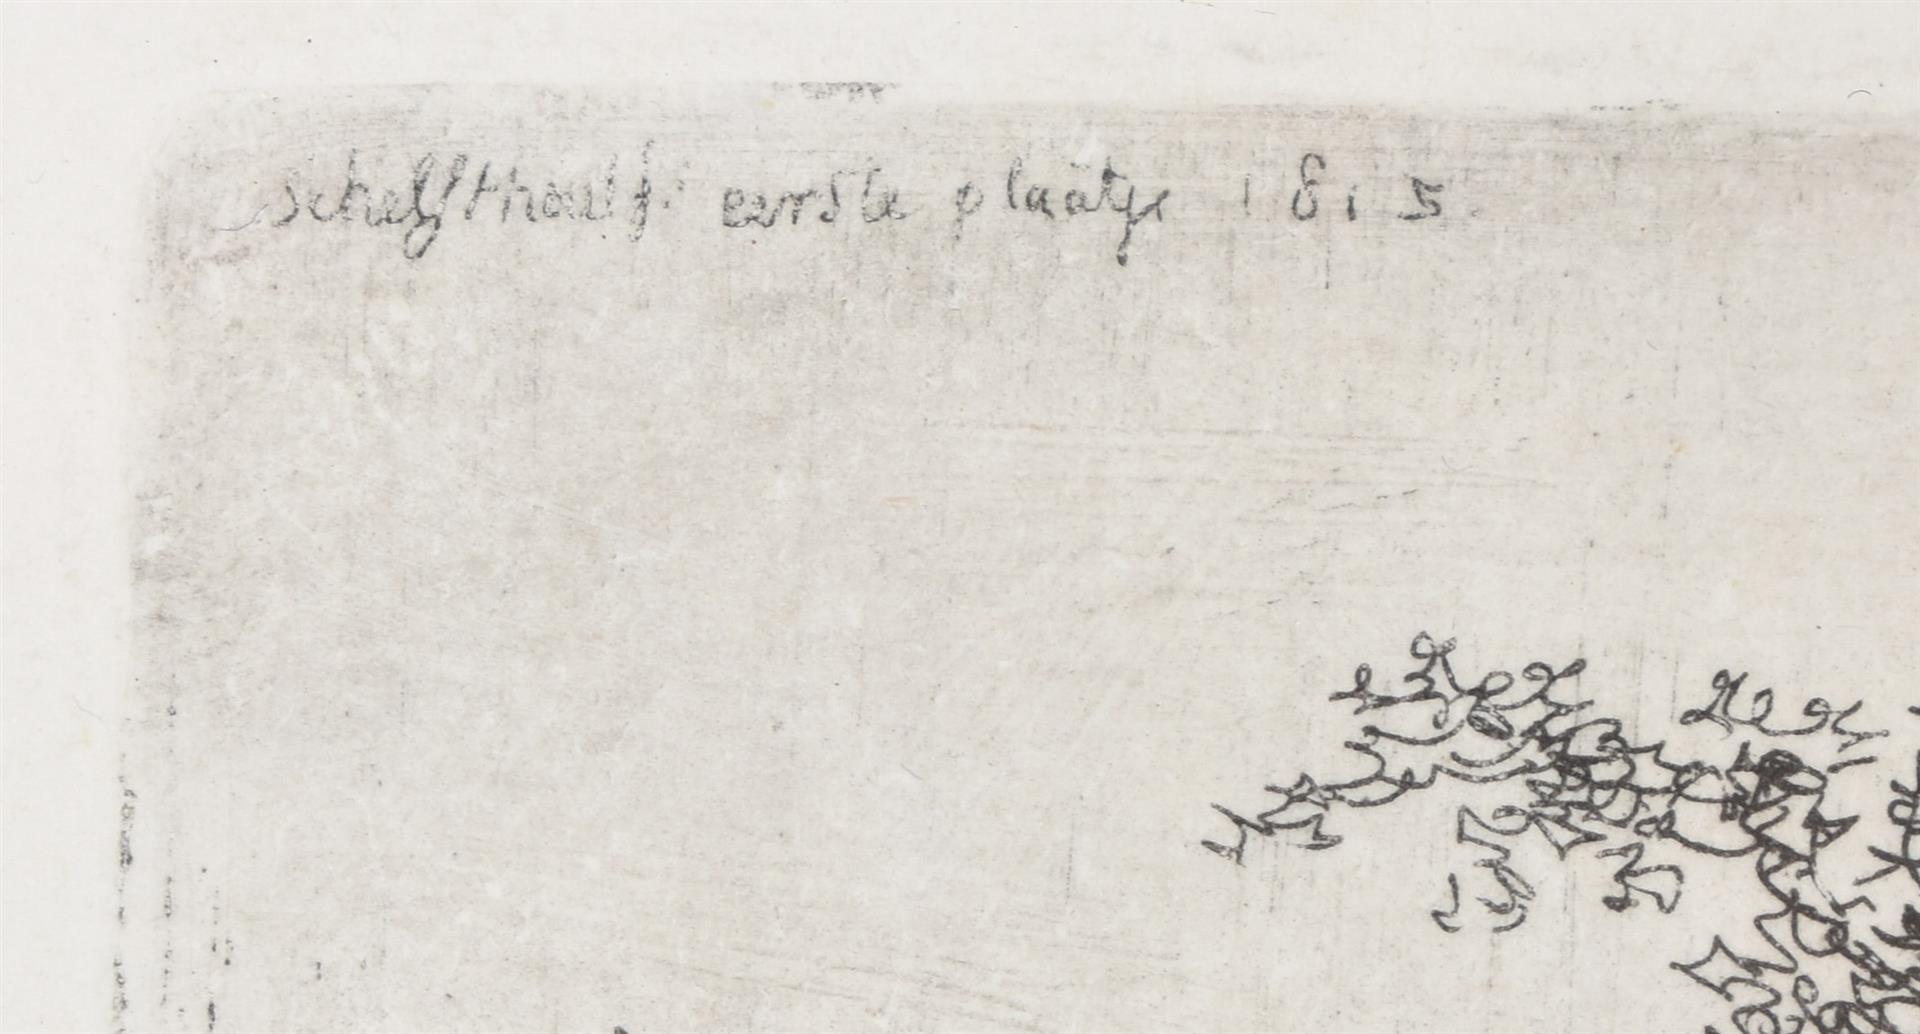 Schelfhout f: eerste plaatje 1815.